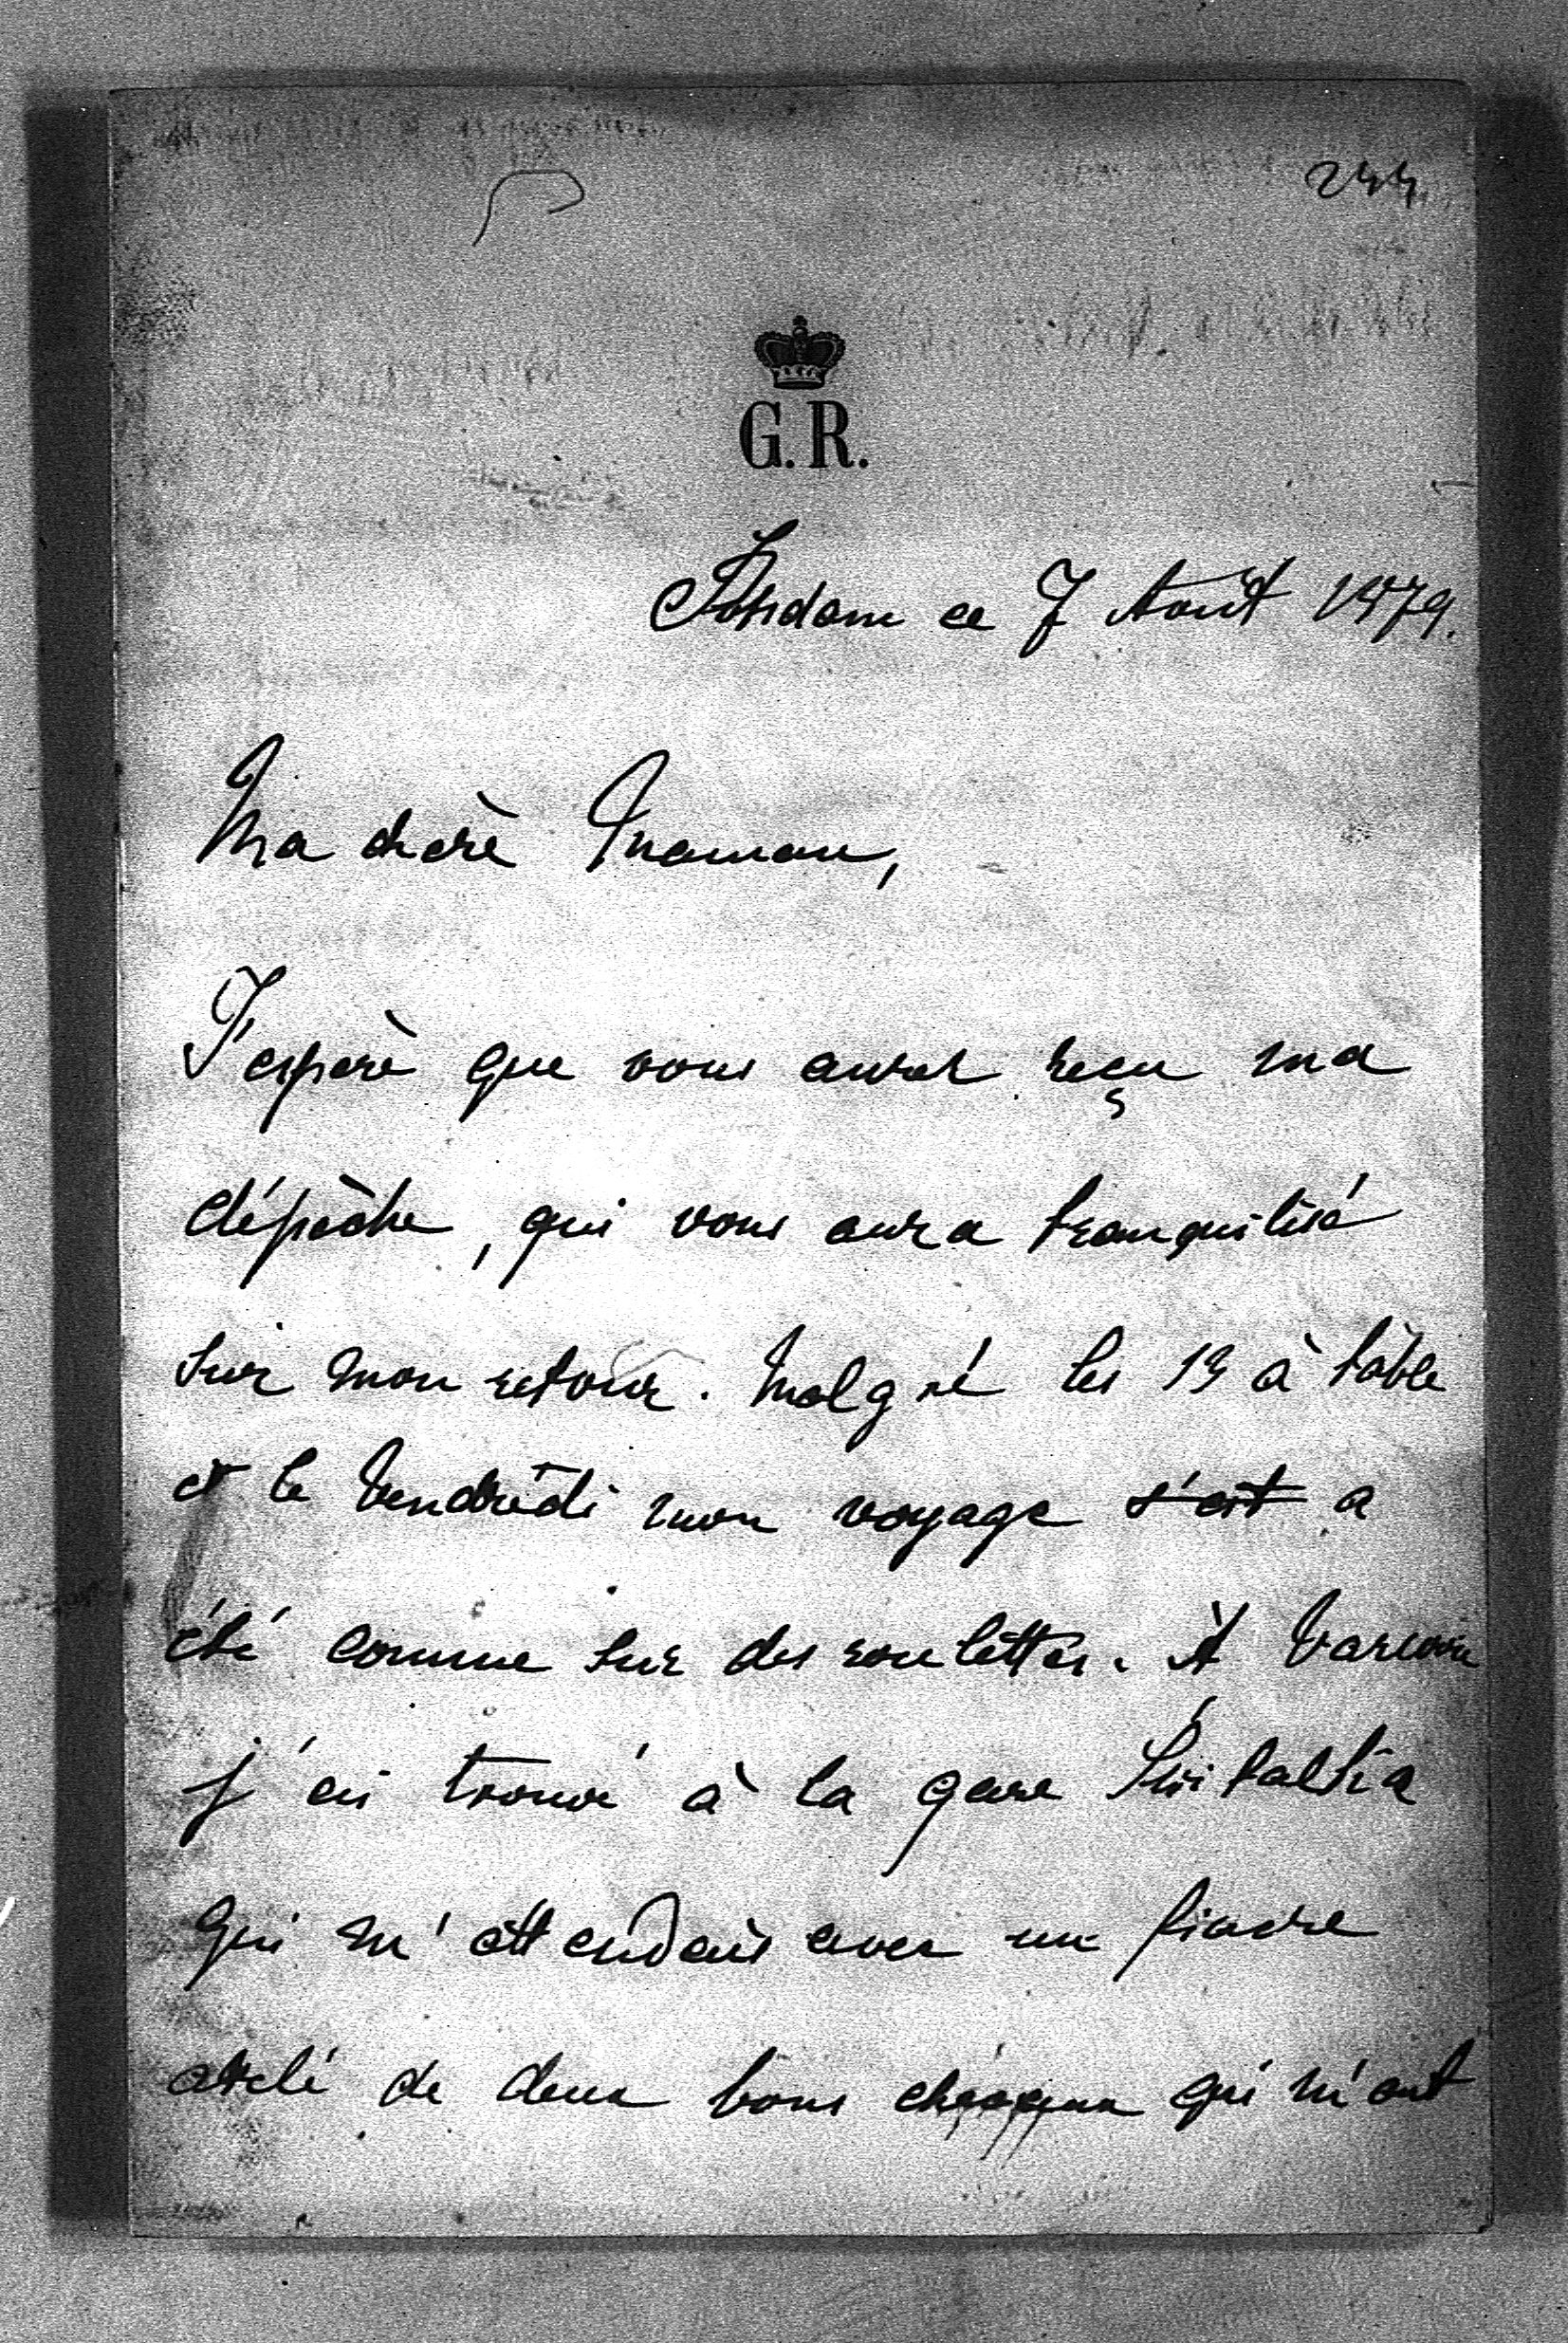 244
G.R.
Potsdam ce 7 Août 1879.
Ma chère Maman,
J'espère que vous avez reçu ma
dépèche, qui vous aura tranquilisé
sur mon retour. Malgré les 13 à table
et le Vendredi mon voyage s'est a
été comme sur des roulettes. À Varsovie
j'ai trouvé à la gare
qui m'attendait avec un fiacre
attelé de deux bons chevaux qui m'ont